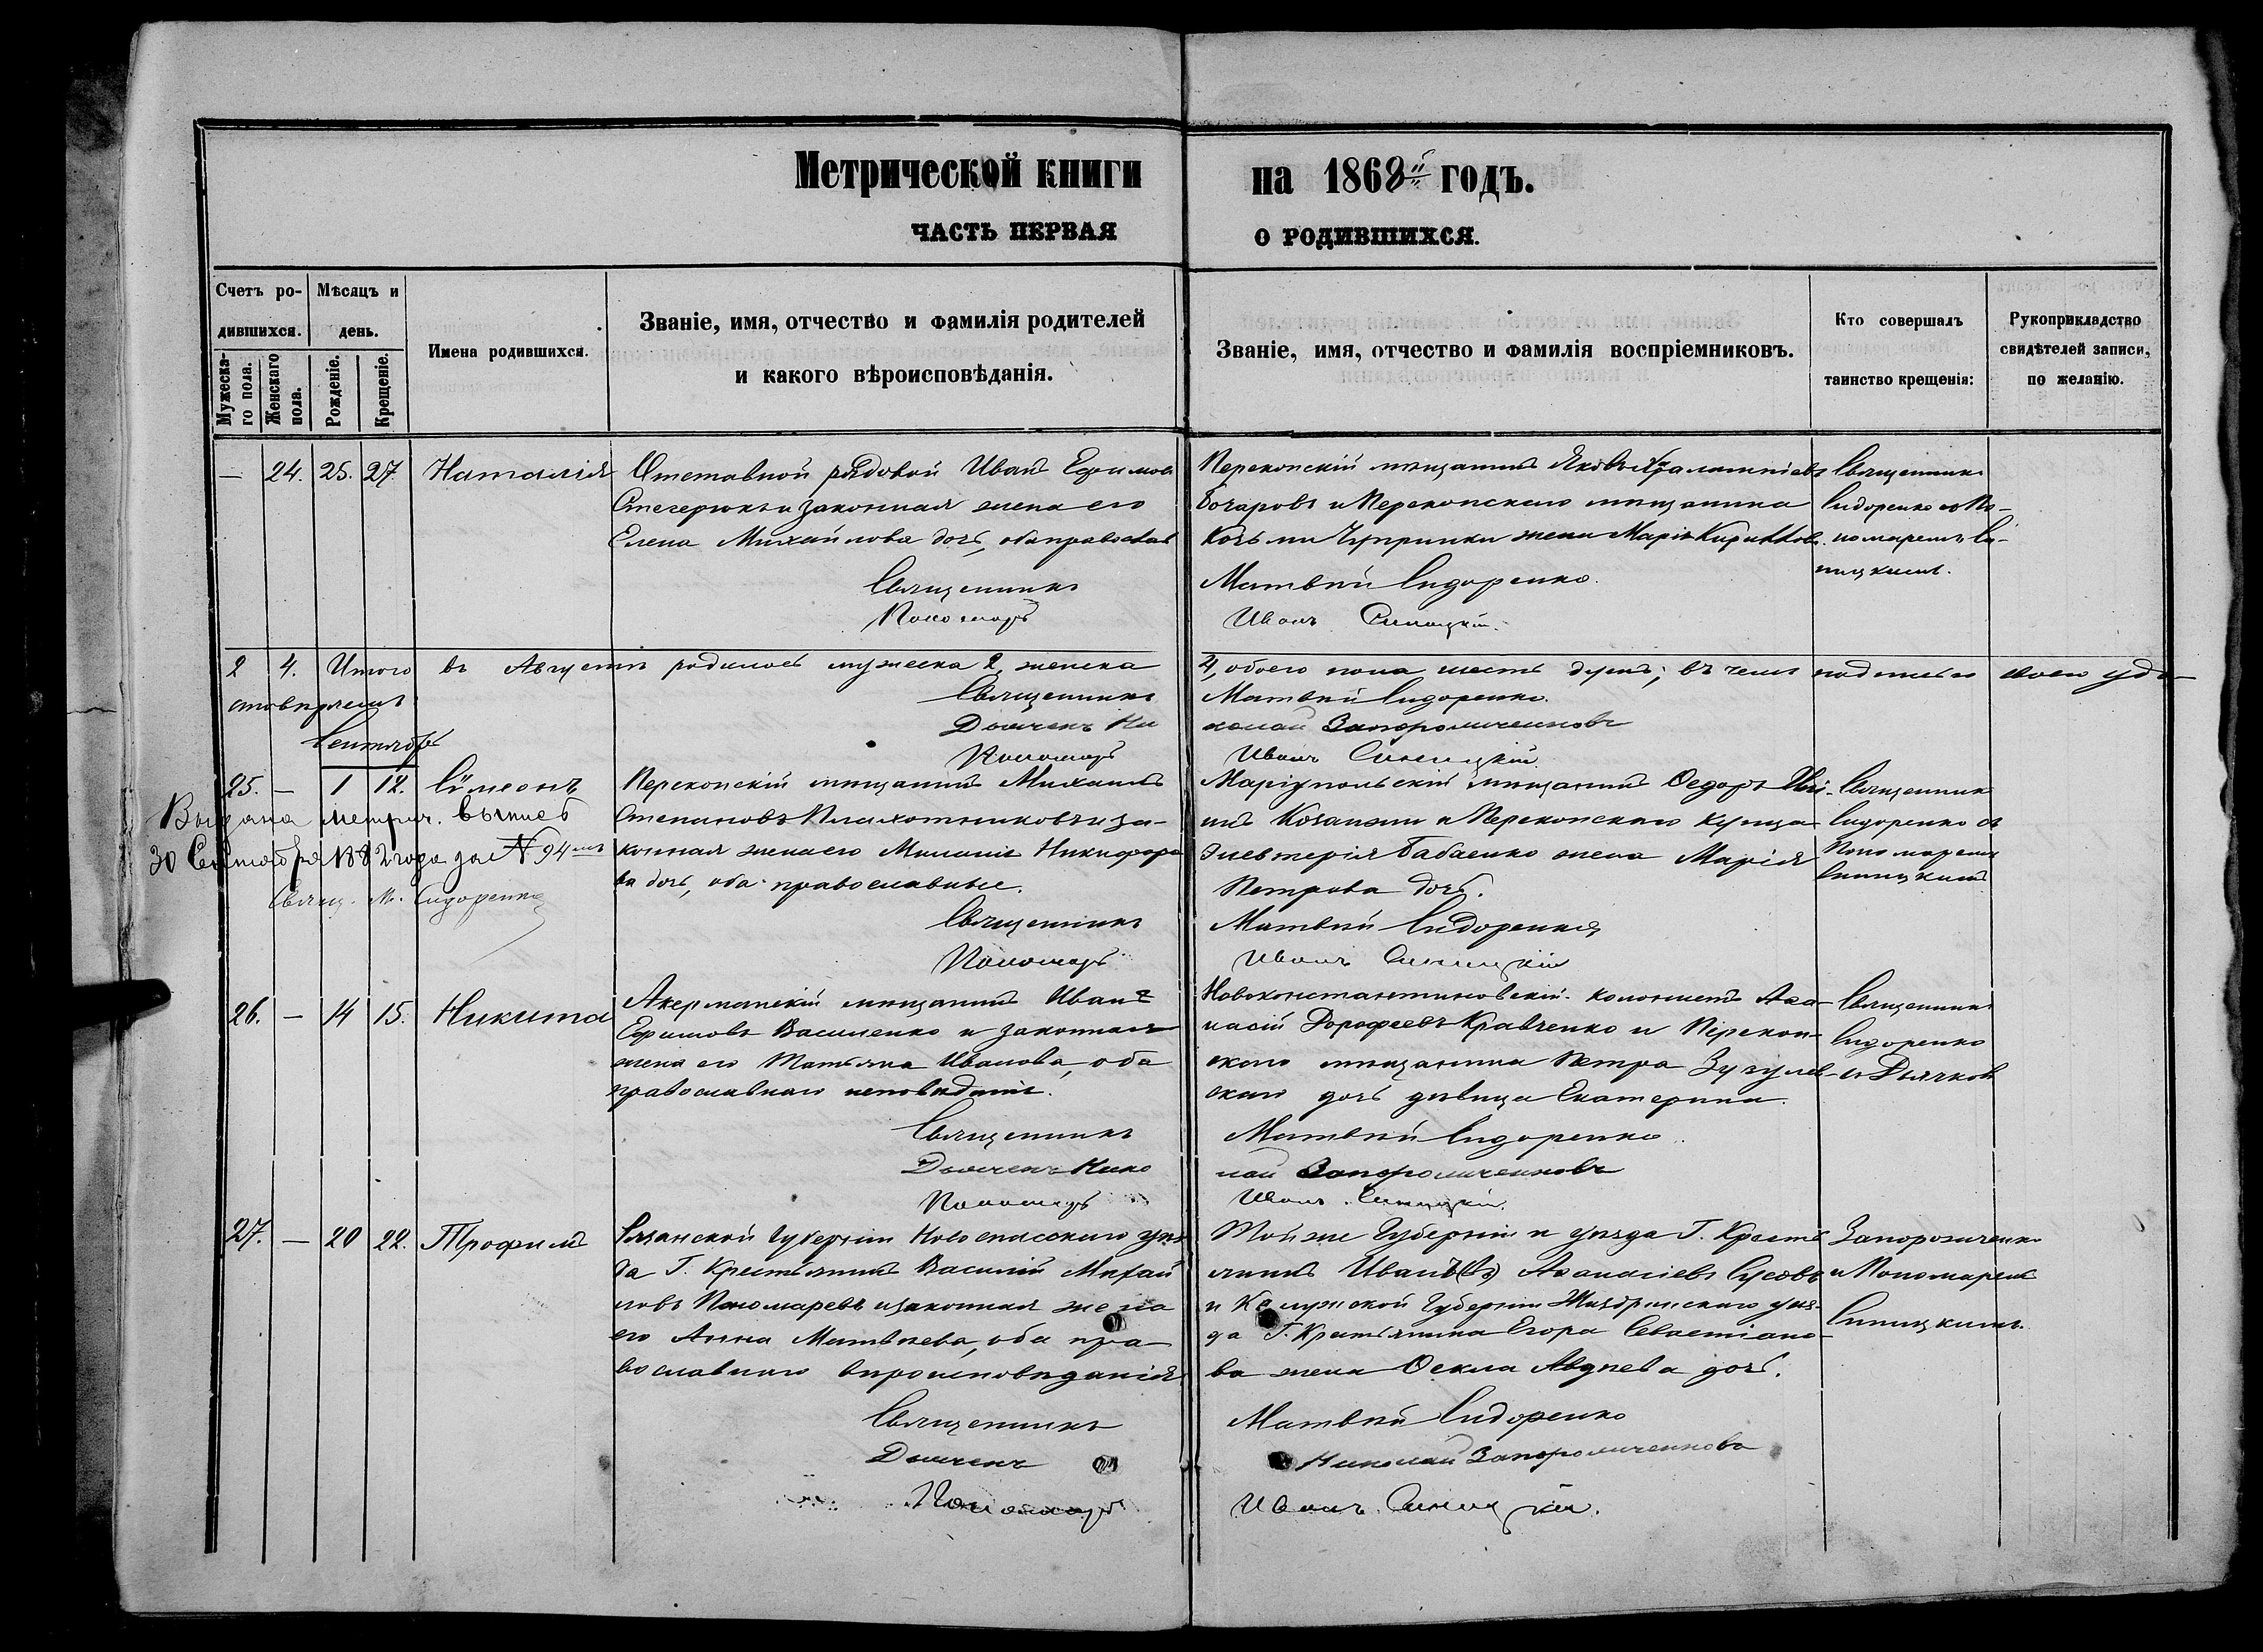 Метрической книги на 1868й годъ.
ЧАСТЬ ПЕРВАЯ О РОДИВШИХСЯ.
Счетъ ро-
дившихся.
Мужеска-
го пола.
Женскаго
пола.
Мѣсяцъ и
день.
Рожденіе.
Крещеніе.
Имена родившихся.
Званіе, имя, отчество и фамилія родителей
и какого вѣроисповѣданія.
Званіе, имя, отчество и фамилія воспріемниковъ.
Кто совершалъ
таинство крещенія:
Рукоприкладство
свидѣтелей записи,
по желанію.
— 24. 25. 27. Наталія
Отставной рядовой Иванъ Ефимовъ
и законная жена его
Елена Михайлова дочь, оба православ
Священникъ
Пономарь
Перекопскій мѣщанинъ Яковъ
Бочаровъ и Перекопскаго мѣщанина
жена Марія
Матвѣй Сидоренко.
Иванъ Синицкій.
Священникъ
Сидоренко съ По-
номаремъ Си-
ницкимъ.
2 4. Итого въ Августѣ родилось мужеска 2, женска 4, обоего пола шесть душъ; въ чемъ подписью своею удо-
стовѣряемъ
Священникъ Матвѣй Сидоренко.
Дьячекъ Николай Запорожченковъ
Пономарь Иванъ Синицкій.
Сентябрь
25. — 1 12. Сѵмеонъ
Выдана метрич. выпись
30 Сентября 1882 года за № 94мъ
Свящ. М. Сидоренко
Перекопскій мѣщанинъ Михаилъ
Степановъ Плахотниковъ и за-
конная жена его Миланія Никифоро
ва дочь, оба православные.
Священникъ
Пономарь
Маріупольскій мѣщанинъ Ѳедоръ
и Перекопскаго купца
Элевтерія Бабаенко жена Марія
Петрова дочь.
Матвѣй Сидоренко
Иванъ Синицкій
Священникъ
Сидоренко съ
Пономаремъ
Синицкимъ
26. — 14 15. Никита
Акерманскій мѣщанинъ Иванъ
Ефимовъ Василенко и законная
жена его Татьяна Иванова, оба
православнаго исповѣданія.
Священникъ
Дьячекъ Нико
Пономарь
Новоконстантиновскій колонистъ Аѳа-
насій Дорофеевъ Кравченко и Перекоп-
скаго мѣщанина Петра Зугулев-
скаго дочь дѣвица Екатерина.
Матвѣй Сидоренко
лай Запорожченковъ
Иванъ Синицкій.
Священникъ
Сидоренко
съ Дьячков
27. — 20 22. Трофимъ
Рязанской Губерніи Новоспасскаго уѣз
да Г. Крестьянинъ Василій Михай
ловъ Пономаревъ и законная жена
его Анна Матвѣева, оба пра
вославнаго вѣроисповѣданія
Священникъ
Дьячекъ
Пономарь
Той же Губерніи и уѣзда Г. Кресть
янинъ Иванъ Аѳанасіевъ Сусовъ
и Калужской Губерніи Жиздринскаго уѣз-
да Г. Крестьянина Егора Севастіано-
ва жена Ѳекла Авдѣева дочь.
Матвѣй Сидоренко
Николай Запорожченковъ
Иванъ Синицкій.
Запорожченко
и Пономаремъ
Синицкимъ.